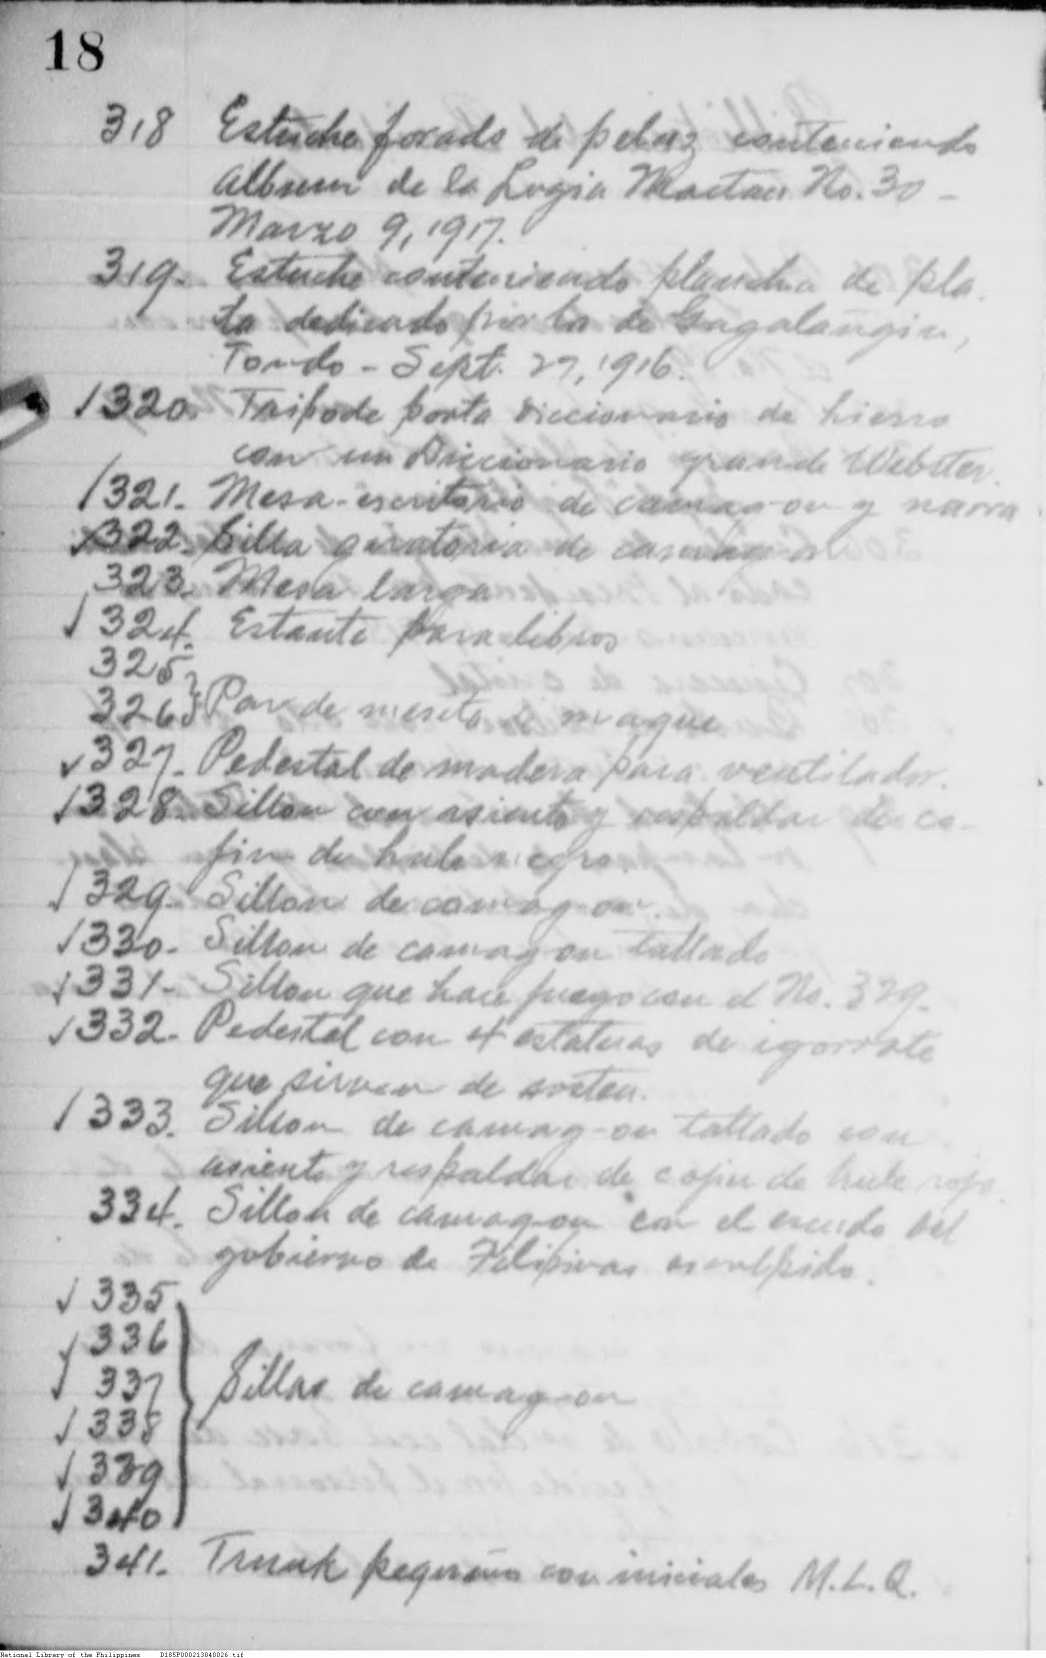 18
318 Estuche forado de peluz conteniendo
Album de la Logia Mactan No. 30 –
Marzo 9, 1917.
319. Estuche conteniendo plancha de pla
ta dedicado por los de Gagalañgin,
Tondo – Sept. 27, 1916.
/ 320. Tripode porta diccionario de hierro
con un Diccionario grande Webster.
/ 321. Mesa-escritorio de camag-on y narra
✓ 322. Silla giratoria de camag-on
323. Mesa larga
✓ 324. Estante para libros
325
326 } Par de mesita maque
✓ 327. Pedestal de madera para ventilador.
✓ 328. Sillon con asiento y respaldar de co-
jin de hule negro.
✓ 329. Sillon de camag-on.
✓ 330. Sillon de camag-on tallado
✓ 331- Sillon que hace juego con el No. 329.
✓ 332- Pedestal con 4 estatuas de igorrote
que sirven de sosten.
/ 333. Sillon de camag-on tallado con
asiento y respaldar de cojin de hule rojo.
334. Sillon de camag-on con el escudo del
gobierno de Filipinas esculpido.
✓ 335
✓ 336
✓ 337 } Sillas de camag-on
✓ 338
✓ 339
✓ 340
341. Trunk pequeño con iniciales M.L.Q.
National Library of the Philippines D185P000213840026.tif